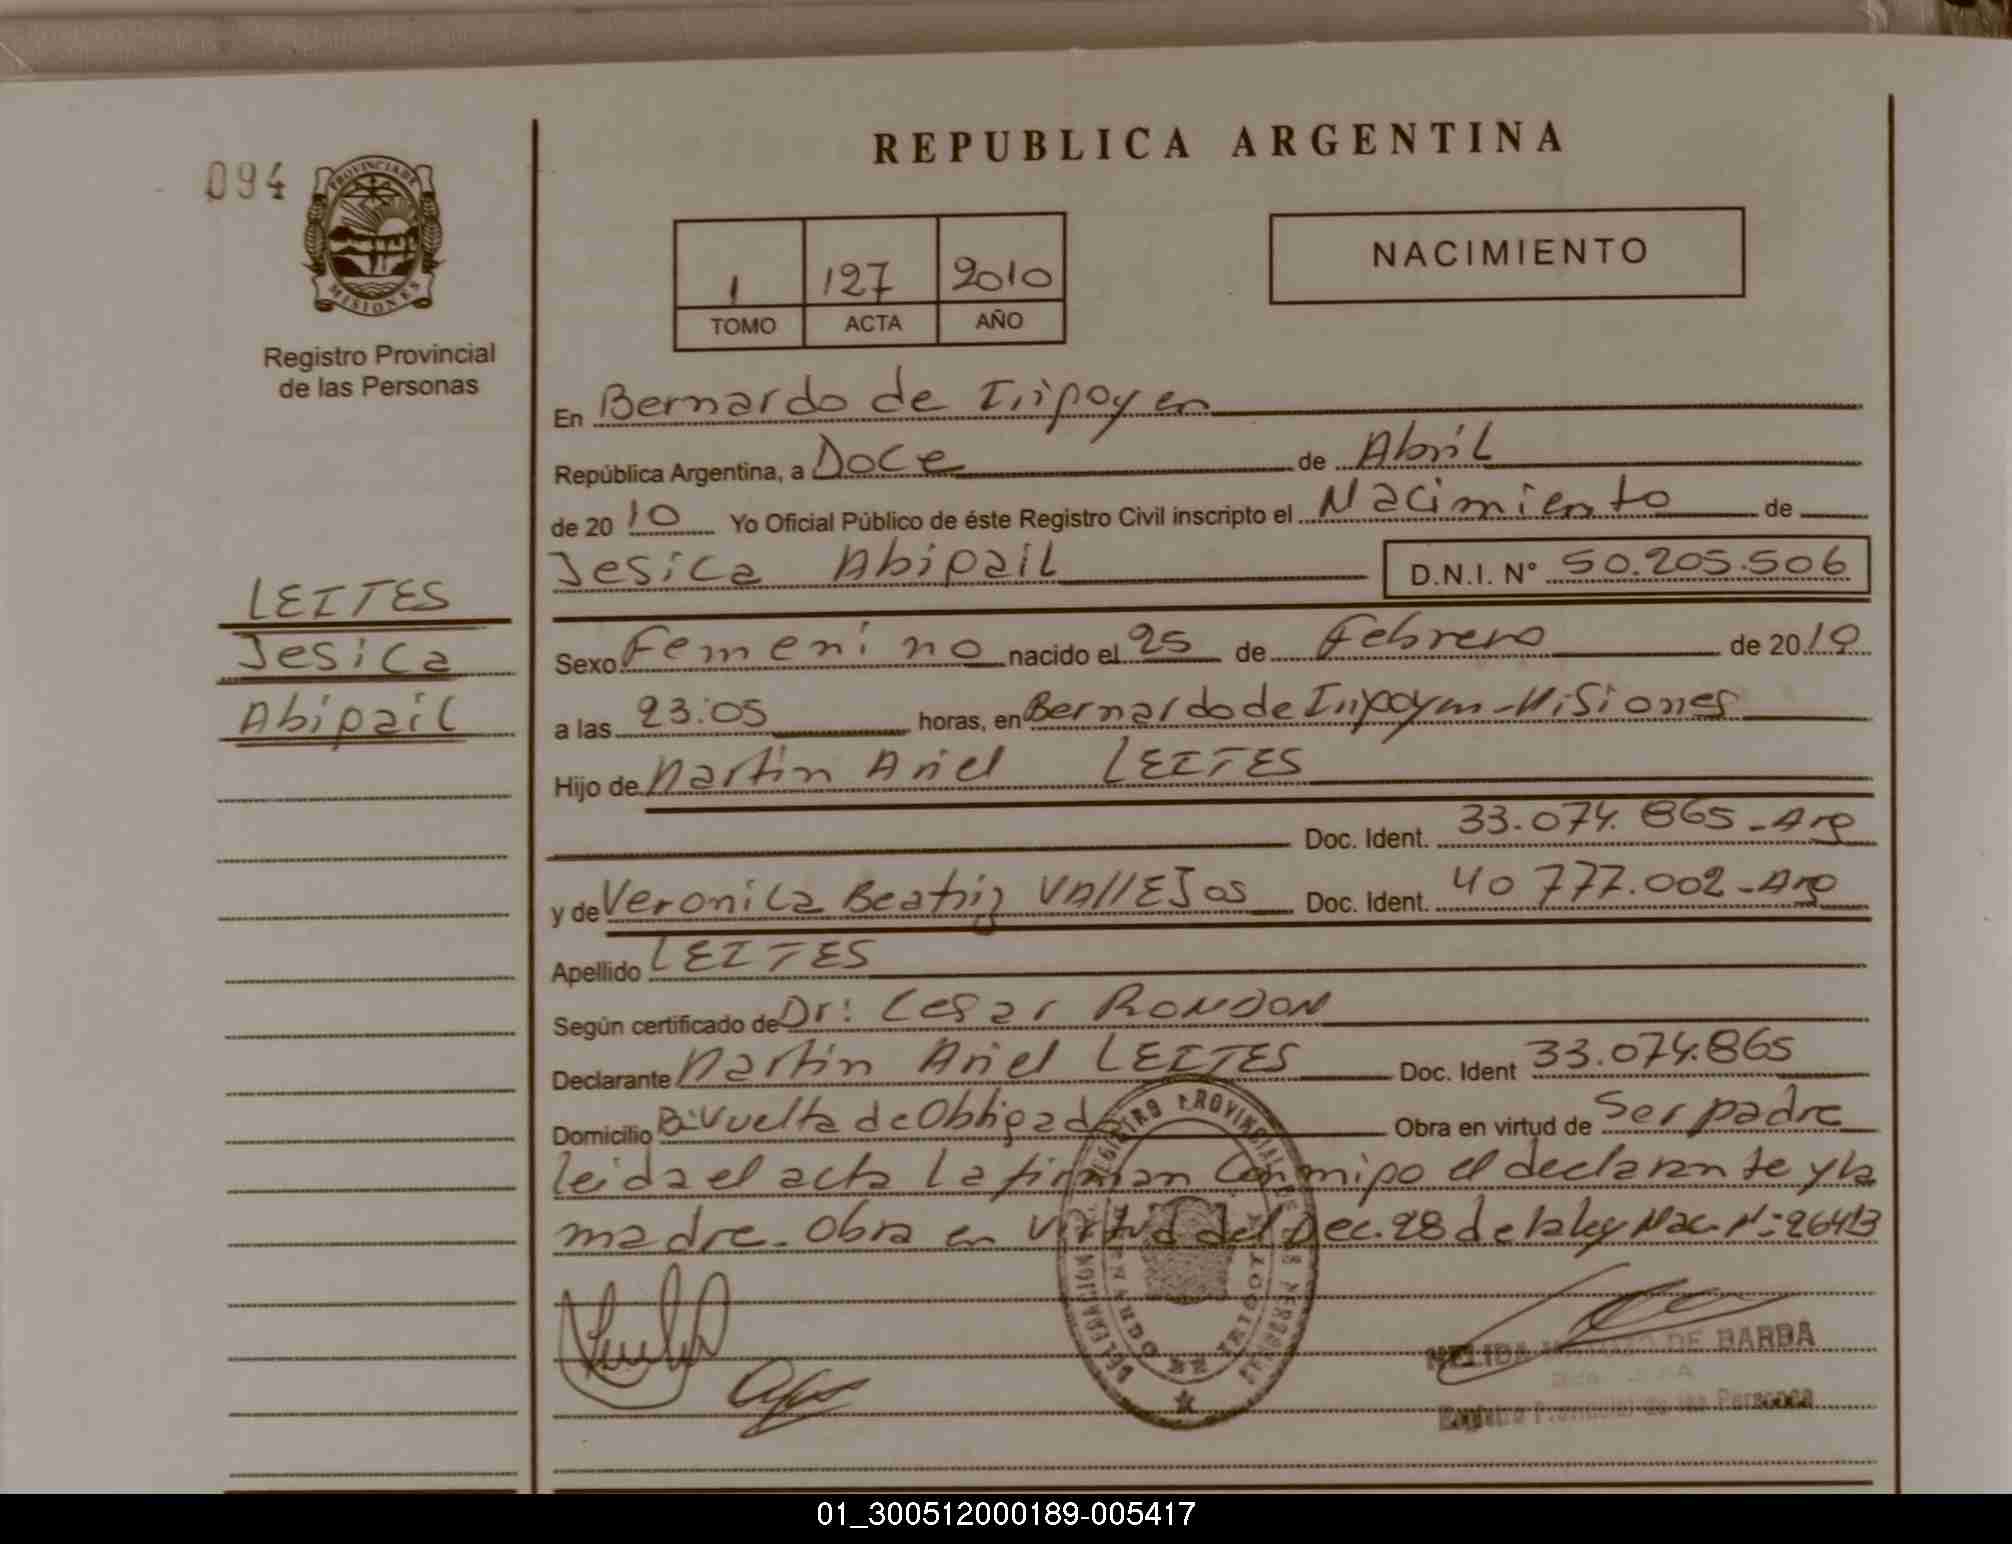 REPUBLICA ARGENTINA
094
PROVINCIA DE
MISIONES
Registro Provincial
de las Personas
1 127 2010
TOMO ACTA AÑO
NACIMIENTO
En Bernardo de Irigoyen
República Argentina, a Doce de Abril
de 20 10 Yo Oficial Público de éste Registro Civil inscripto el Nacimiento de
Jesica Abigail D.N.I. N° 50.205.506
LEITES
Jesica
Abigail
Sexo Femenino nacido el 25 de Febrero de 2010
a las 23:05 horas, en Bernardo de Irigoyen - Misiones
Hijo de Martin Ariel LEITES
Doc. Ident. 33.074.865 - Arg
y de Veronica Beatriz VALLEJOS Doc. Ident. 40.777.002 - Arg
Apellido LEITES
Según certificado de Dr: Cesar RONDON
Declarante Martin Ariel LEITES Doc. Ident 33.074.865
Domicilio B: Vuelta de Obligad Obra en virtud de Ser padre
leida el acta la firman conmigo el declarante y la
madre. Obra en virtud del Dec. 28 de la ley Nac. N: 26413
REGISTRO PROVINCIAL DE LAS PERSONAS
DELEGACION
DE BARDA
Registro Provincial de las Personas
01_300512000189-005417